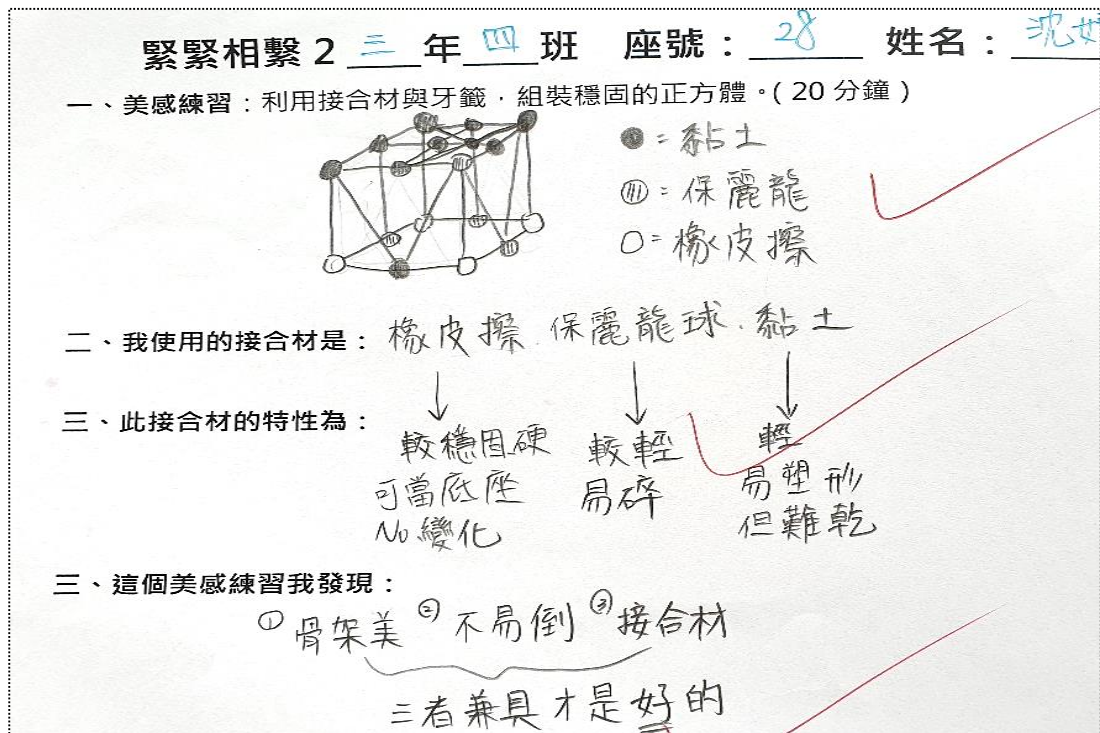 緊緊相繫 2 三年四班 座號：28 姓名：沈
一、美感練習：利用接合材與牙籤，組裝穩固的正方體。( 20 分鐘 )
= 黏土
= 保麗龍
= 橡皮擦
二、我使用的接合材是：橡皮擦、保麗龍球、黏土
三、此接合材的特性為：
較穩固硬 較輕 輕
可當底座 易碎 易塑形
No 變化 但難乾
三、這個美感練習我發現：
① 骨架美 ② 不易倒 ③ 接合材
三者兼具才是好的